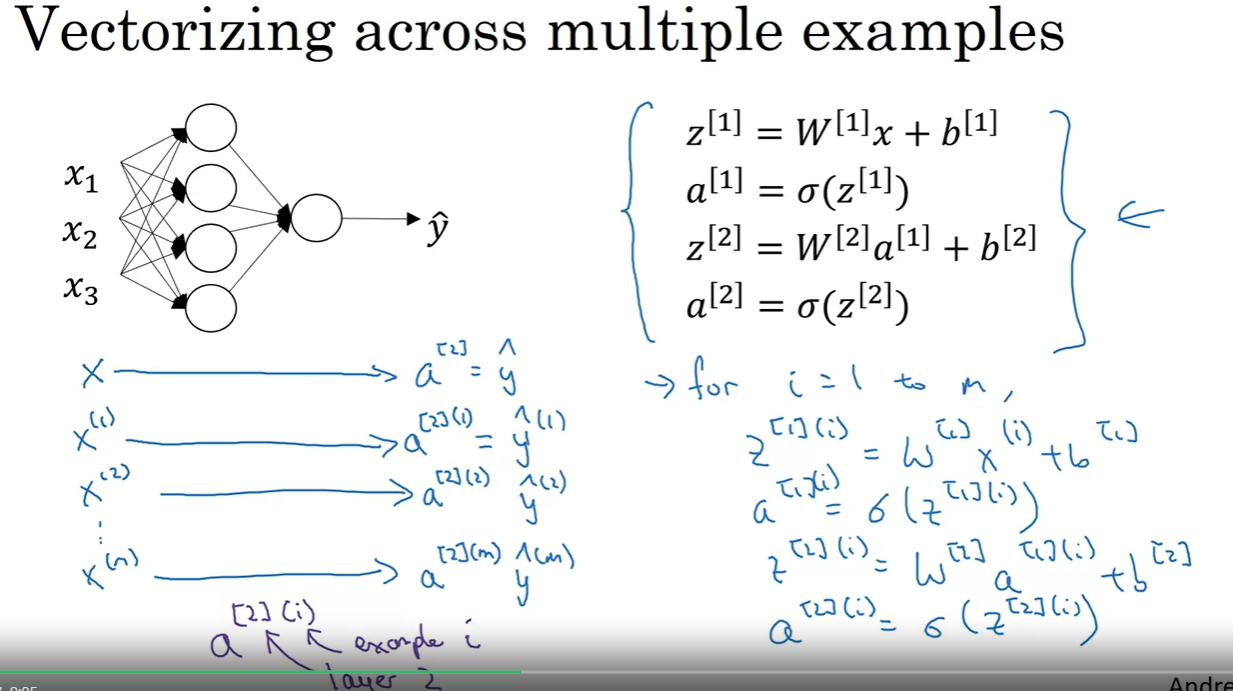 Vectorizing across multiple examples
x₁
x₂
x₃
ŷ
z^[1] = W^[1]x + b^[1]
a^[1] = σ(z^[1])
z^[2] = W^[2]a^[1] + b^[2]
a^[2] = σ(z^[2])
x → a^[2] = ŷ
x^(1) → a^[2](1) = ŷ^(1)
x^(2) → a^[2](2) ŷ^(2)
⋮
x^(m) → a^[2](m) ŷ^(m)
a^[2](i)
example i
layer 2
→ for i = 1 to m,
z^[1](i) = W^[1] x^(i) + b^[1]
a^[1](i) = σ(z^[1](i))
z^[2](i) = W^[2] a^[1](i) + b^[2]
a^[2](i) = σ(z^[2](i))
Andre